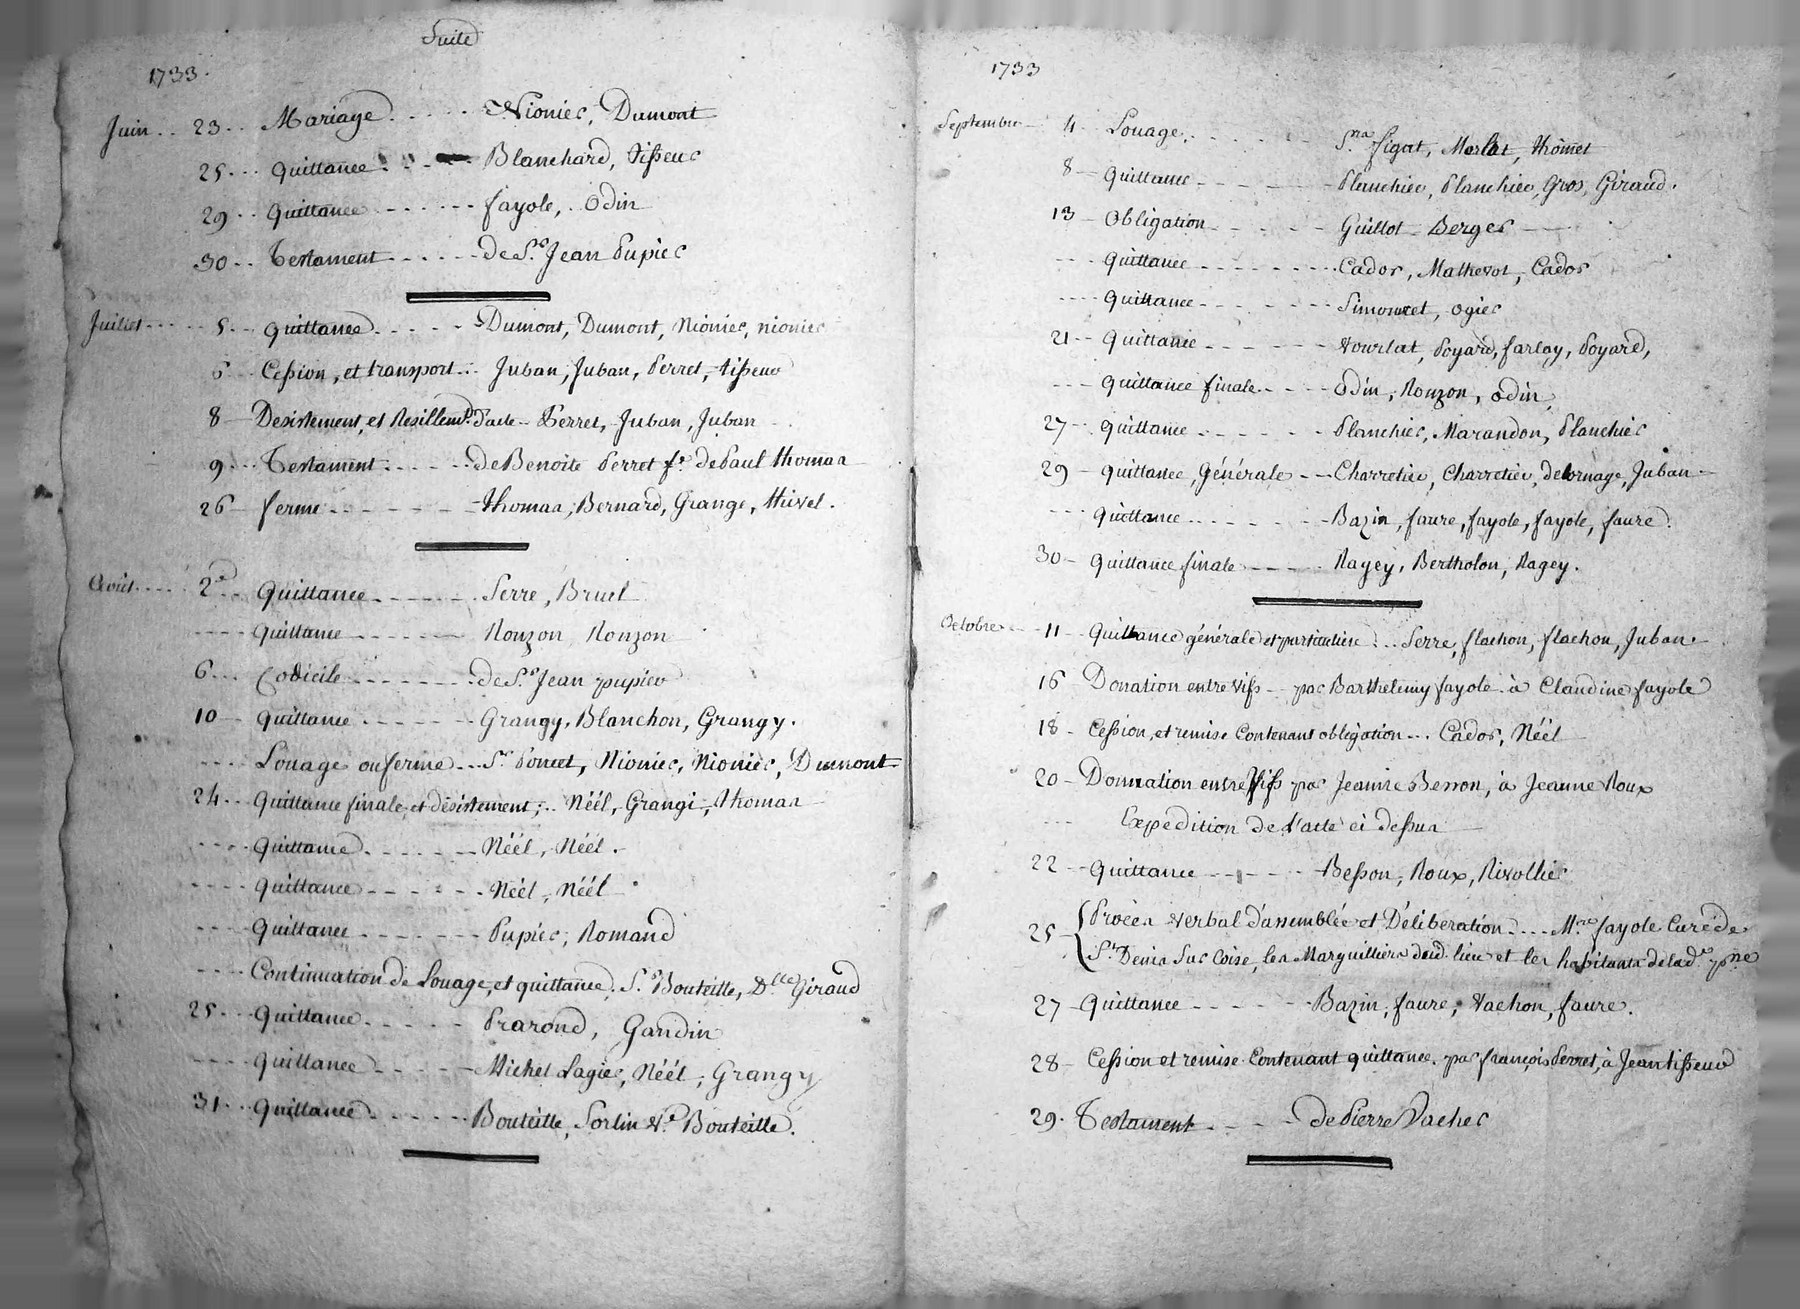 Suite
1733.
Juin .. 23 .. Mariage ..... Nionier, Dumont
25 ... quittance ..... Blanchard, tisseur
29 .. quittance ...... fayole, Odin
30 .. Testament ..... de Sr. Jean Pupier
Juillet ..... 5 .. quittance ..... Dumont, Dumont, Nionier, nionier
6 .. Cession, et transport ... Juban, Juban, Perret, tisseur
8 - Desistement, et Resillemt. d'acte .. Perret, Juban, Juban
9 ... Testament ...... de Benoite Perret fe. de Paul thomas
26 - ferme ........ thomas, Bernard, Grange, thivel.
Août ..... 2e .. Quittance ...... Serre, Bruel
.... quittance ...... Ronzon Ronzon
6 ... Codicile ....... de Sr. Jean pupier
10 - quittance ...... Grangy, Blanchon, Grangy.
.... Louage ou ferme ... Sr. Poncet, Nionier, Nionier, Dumont
24 .. Quittance finale, et désistement; .. Néél, Grangi, thomas
.... quittance ...... Néél, Néél.
.... quittance ...... Néél, Néél
.... quittance ..... Pupier, Romand
.... Continuation de Louage, et quittance. Sr. Bouteille, Dlle Giraud
25 ... quittance ..... Prarond, Gandin
.... quittance ..... Michel Lagier, Néél, Grangy
31 ... quittance ...... Bouteille, Sorlin Ve. Bouteille.
1733
Septembre - 4 .. Louage, ..... Srs. figat, Merlat, thomet
8 - quittance ...... Planchier, Planchier, Gros, Giraud.
13 - Obligation ..... Guillot - Berger
... quittance ........ Cador, Mathevot, Cador
.... quittance ...... Simonet, ogier
21 .. quittance ...... vourlat, Poyard, farlay, Poyard,
... quittance finale ..... Odin, Ronzon, Odin,
27 - quittance ...... Planchier, Marandon, Planchier
29 - quittance, Générale ... Charretier, Charretier, delornage, Juban
... quittance ....... Bazin, faure, fayole, fayole, faure.
30 - quittance finale ..... Ragey, Bertholon, Ragey.
Octobre .... 11 - Quittance générale et particuliere ... Serre, flachon, flachon, Juban
16 Donation entre vifs - par Barthelemy fayole à Claudine fayole
18 - Cession, et remise Contenant obligation ... Cador, Néél
20 - Donnation entre Vifs par Jeanne Besson, à Jeanne Roux
... Expedition de l'acte ci dessus
22 - quittance ...... Besson, Roux, Rivollier
25 - Procès verbal d'assemblée et Déliberation .... Mre fayole Curé de
St. Denis Sur Coise, les Marguilliers dud. lieu et les habitants de lade. pne
27 - Quittance ...... Bazin, faure, Vachon, faure.
28 - Cession et remise Contenant quittance. par françois Perret, à Jean tisseur
29. Testament .... de Pierre Vacher